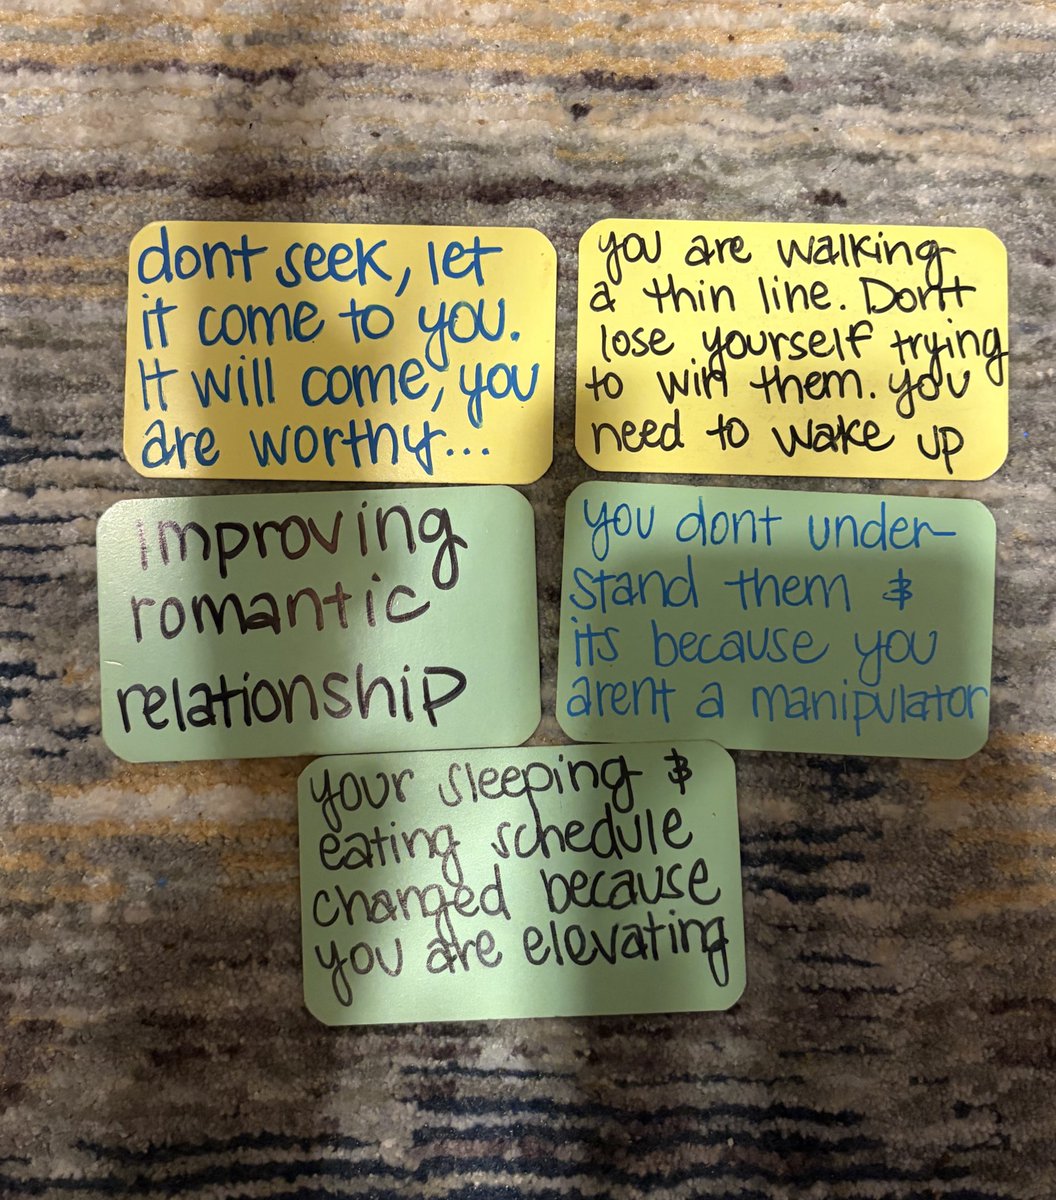 dont seek, let
it come to you.
It will come, you
are worthy...
you are walking
a thin line. Don't
lose yourself trying
to win them. you
need to wake up
improving
romantic
relationship
you dont under-
stand them &
its because you
arent a manipulator
your sleeping &
eating schedule
changed because
you are elevating